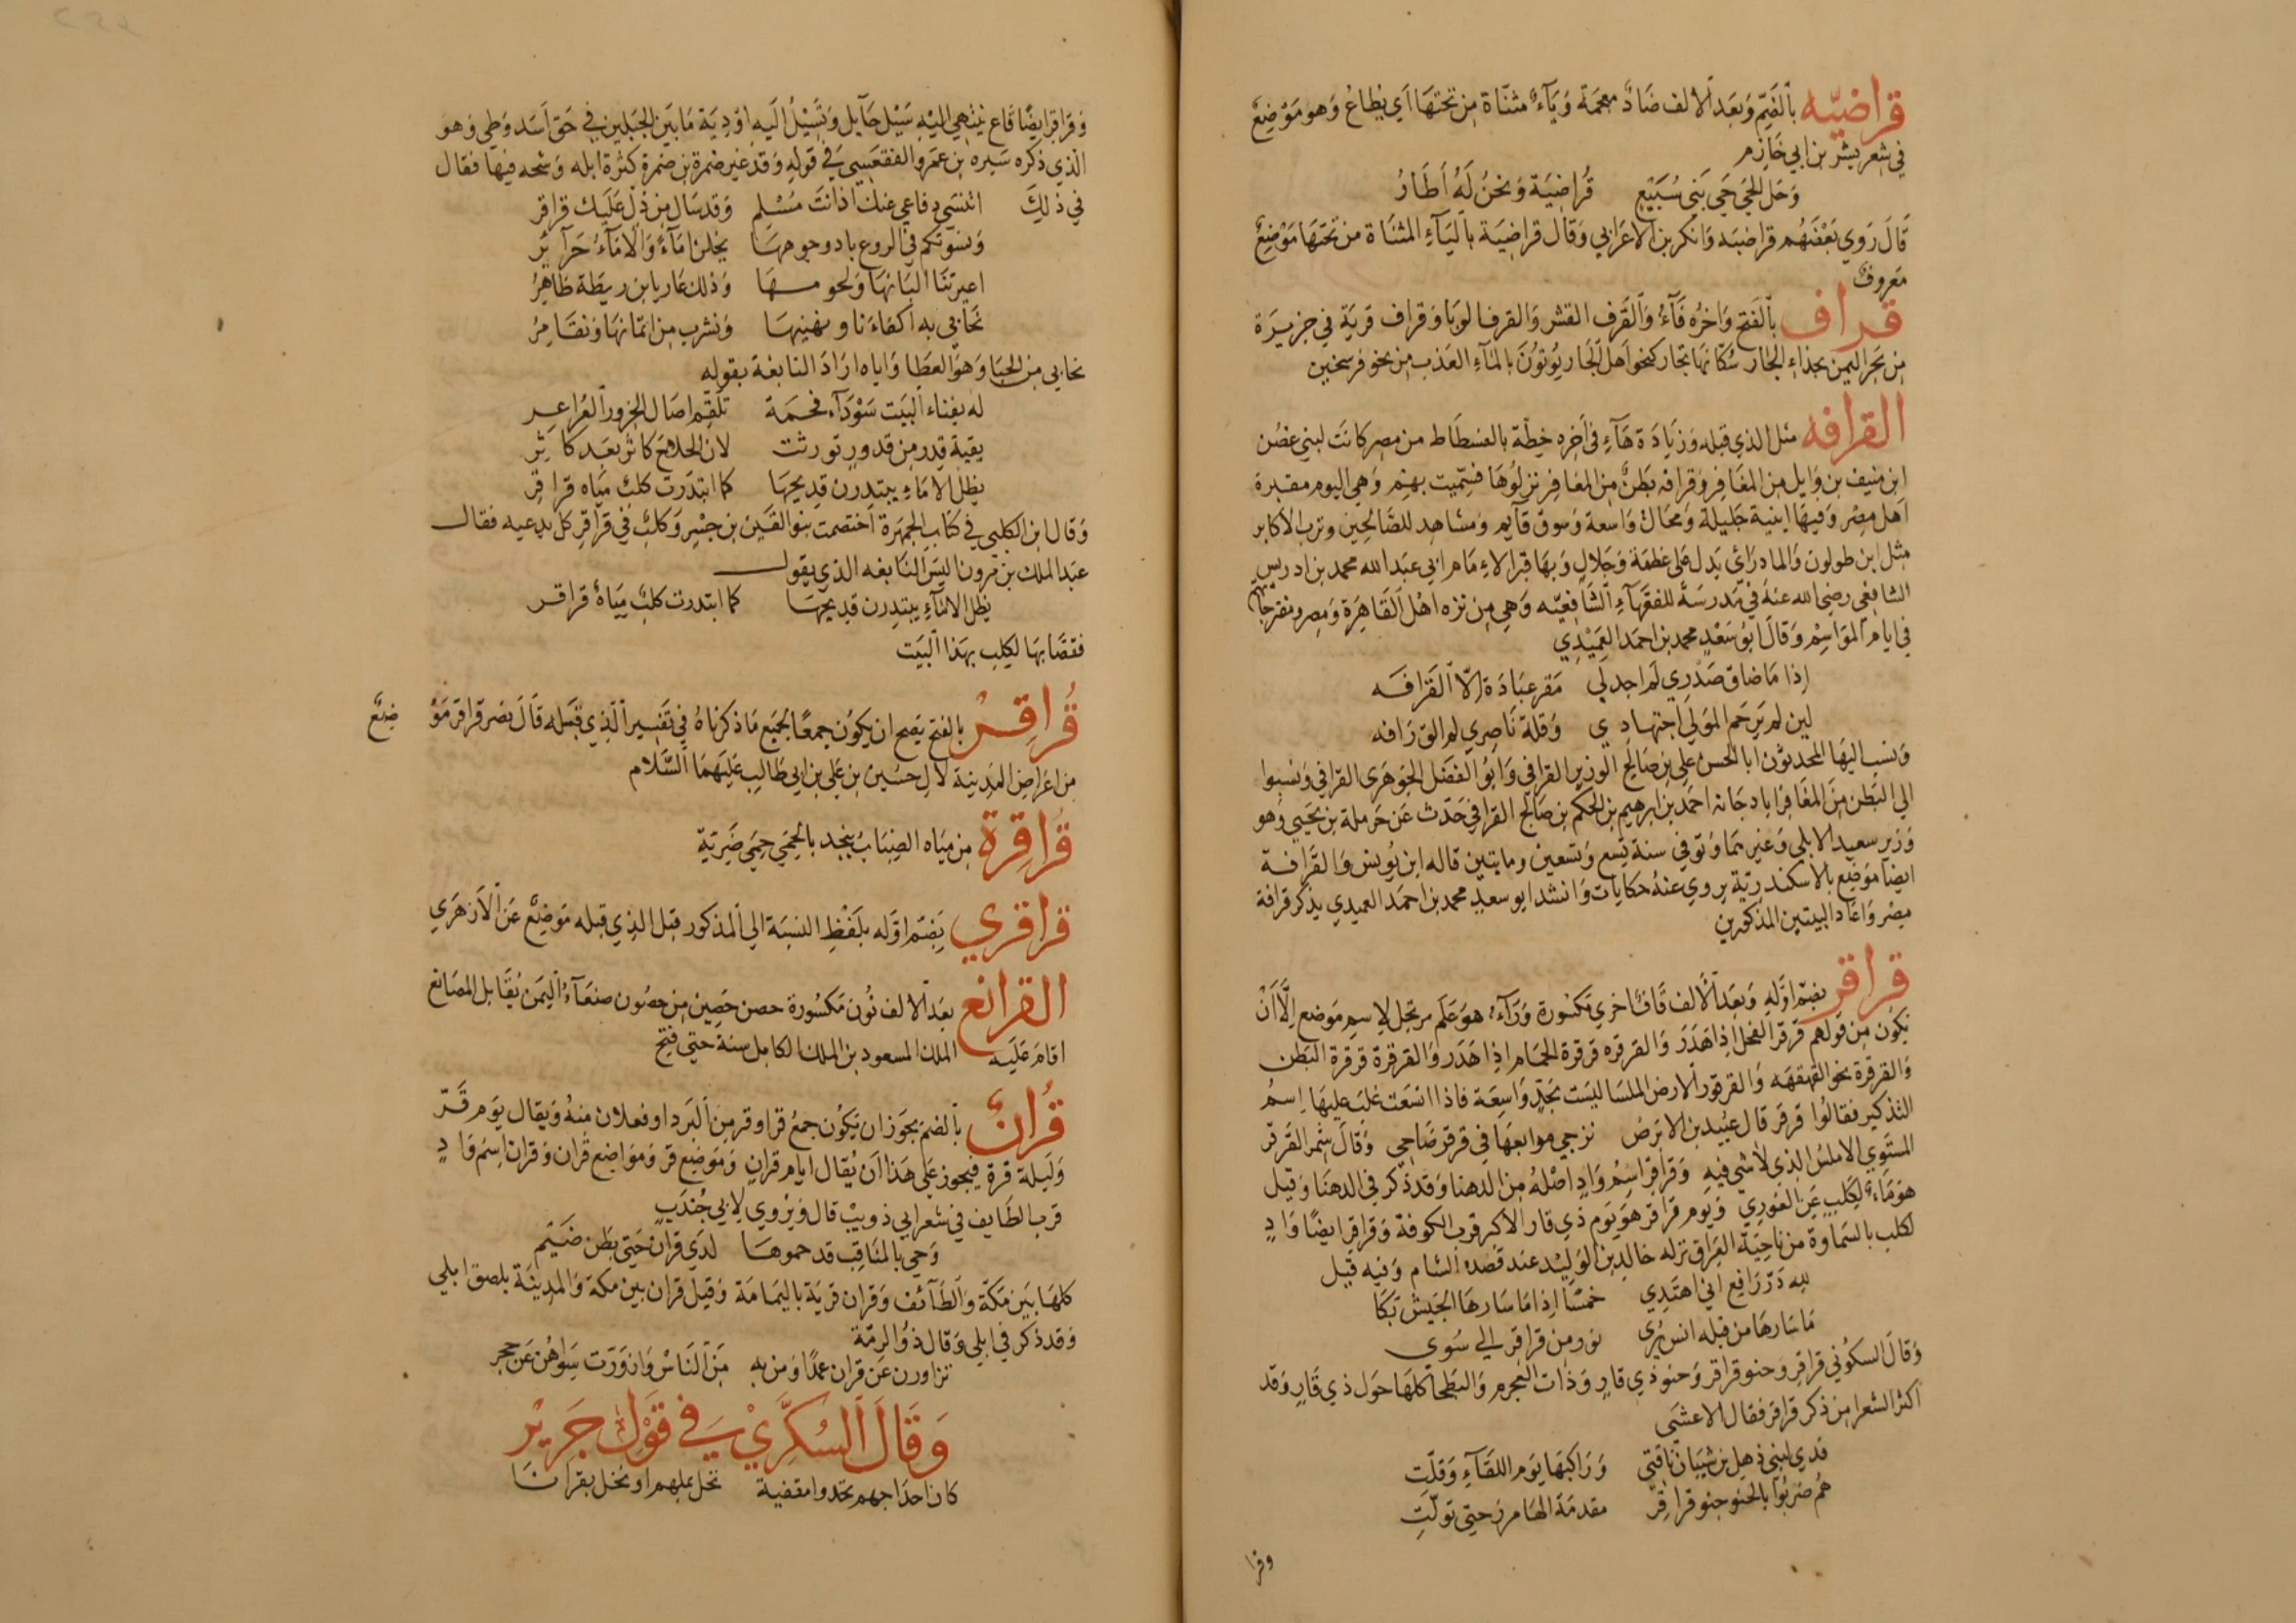 قراضيّه بالضم وبعد الالف ضاد معجمة وياء مثناة من تحتها اي بطاع وهو موضع
في شعر بشر بن ابي خازم
وحل الحي حي بني سبيع قراضية ونحن له اطار
قال روي بعضهم قراضبه وانكر بن الاعرابي وقال قراضية بالياء المثناة من تحتها موضع
معروف
قراف بالفتح واخره فاء والقرف القشر والقرف الوبا وقراف قرية في جزيرة
من بحر اليمن بحذاء الجار سكانها تجار كنحو اهل الجار يوتون بالماء العذب من نحو فرسخين
القرافه مثل الذي قبله وزيادة هاء في اخره خطة بالفسطاط من مصر كانت لبني غصن
ابن منيف بن وايل من المغافر وقرافه بطن من المغافر نزلوها فسميت بهم وهي اليوم مقبرة
اهل مصر وفيها ابنية جليلة ومحال واسعة وسوق قايم ومشاهد للصالحين وترب الاكابر
مثل ابن طولون والمادرائ يدل على عظمة وجلال وبها قبر الاءمام ابي عبد الله محمد بن ادريس
الشافعي رضي الله عنه في مدرسة للفقهاء الشافعيه وهي من نزه اهل القاهرة ومصر ومتفرجاتهم
في ايام المواسم وقال ابو سعد محمد بن احمد العميدي
اذا ما ضاق صدري لم اجد لي مقر عبادة الا القرافه
لين لم يرحم المولى اجتهادي وقلة ناصري لم الق رافه
ونسب اليها المحدثون ابا الحسن علي بن صالح الوزير القرافي وابو الفضل الجوهرى القرافي ونسبوا
الى البطن من المغافر ابا دجانه احمد بن ابرهيم بن الحكم بن صالح القرافي حدث عن حرملة بن يحيي وهو
وزير سعيد الابلي وغيرهما وتوفي سنة تسع وتسعين ومايتين قاله ابن يونس والقرافة
ايضا موضع بالاسكندرية يروي عنه حكايات وانشد ابو سعد محمد بن احمد العميدي يذكر قرافة
مصر واعاد البيتين المذكورين
قراقر بضم اوله وبعد الالف قاف اخري مكسورة وراء هو علم مرتجل لاسم موضع الا ان
يكون من قولهم قرقر الفحل اذا هدر والقرقره قرقرة الحمام اذا هدر والقرقرة قرقرة البطن
والقرقرة نحو القهقهه والقرقور الارض الملسا ليست بجد واسعة فاذا اتسعت غلب عليها اسم
التذكير فقالوا قرقر قال عبيد بن الابرص نزجي مرابعها في قرقر ضاحي وقال شمر القرقر
المستوي الاملس الذي لا شي فيه وقراقر اسم واد اصله من الدهنا وقد ذكر في الدهنا وقيل
هو ماء لكلب عن الغوري ويوم قراقر هو يوم ذي قار الاكبر قرب الكوفة وقراقر ايضا واد
لكلب بالسماوة من ناحية العراق نزله خالد بن الوليد عند قصده الشام وفيه قيل
لله در رافع اني اهتدي خمسا اذا ما سارها الجيش بكا
ما سارها من قبله انس يرى فوز من قراقر الي سوى
وقال السكوني قراقر وحنو قراقر وحنو ذي قار وذات العجرم والبطحا كلها حول ذي قار وقد
اكثر الشعرا من ذكر قراقر فقال الاعشى
فدي لبني ذهل بن شيبان ناقتي وراكبها يوم اللقاء وقلت
هم ضربوا بالحنو حنو قراقر مقدمة الهامرز حتى تولت
وقرا
وقراقر ايضا قاع ينتهي اليه سيل حايل وتسيل اليه اودية ما بين الجبلين في حق اسد وطي وهو
الذي ذكره سبره بن عمرو الفقعسي في قوله وقد غير ضمرة بن ضمرة كثرة ابله وشحه فيها فقال
في ذلك اتنسي دفاعي عنك اذ انت مسلم وقد سال من ذل عليك قراقر
ونسوتكم في الروع باد وجوهها يخلن اماء والاماء حرائر
اعيرتنا البانها ولحومها وذلك عار يا بن ريطة ظاهر
نحابي به اكفاءنا ونهينها ونشرب من اثمانها ونقامر
نحابي من الحبا وهو العطا واياه اراد النابغة بقوله
له بفناء البيت سوداء فحمة تلقم اصال الجزور العراعر
بقية قدر من قدور تورثت لال الجلاح كابر بعد كابر
يظل الاماء يبتدرن قديحها كما ابتدرت كلب مياه قراقر
وقال ابن الكلبي في كتاب الجمهرة اختصمت بنو القين بن جسر وكلب في قراقر كل يدعيه فقال
عبد الملك بن مرون اليس النابغه الذي يقول
يظل الاماء يبتدرن قديحها كما ابتدرت كلب مياه قراقر
فقضا بها لكلب بهذا البيت
قراقر بالفتح يصح ان يكون جمعا لجميع ما ذكرناه في تفسير الذي قبله قال نصر قراقر موضع
من اعراض المدينة لال حسين بن علي بن ابي طالب عليهما السلام
قراقرة من مياه الضباب بنجد بالحمي حمي ضرية
قراقري بضم اوله بلفظ النسبة الي المذكور قبل الذي قبله موضع عن الازهري
القرانع بعد الالف نون مكسورة حصن حصين من حصون صنعاء اليمن يقابل المصانع
اقام عليه الملك المسعود بن الملك الكامل سنة حتى فتح
قران بالضم يجوز ان يكون جمع قر او قر من البرد او فعلان منه ويقال يوم قر
وليلة قرة فيجوز علي هذا ان يقال ايام قران وموضع قر ومواضع قران وقران اسم واد
قرب الطايف في شعر ابي ذويب قال ويروي لابي جندب
وحي بالمناقب قد حموها لدي قران حتى بطن ضيم
كلها بين مكة والطائف وقران قرية باليمامة وقيل قران بين مكة والمدينة بلصق ابلي
وقد ذكر في ابلي وقال ذو الرمة
تزاورن عن قران عمدا ومن به من الناس وازورت سواهن عن حجر
وقال السكري في قول جرير
كان احداجهم تحدوا مقفية نخل بملهم او نخل بقرانا